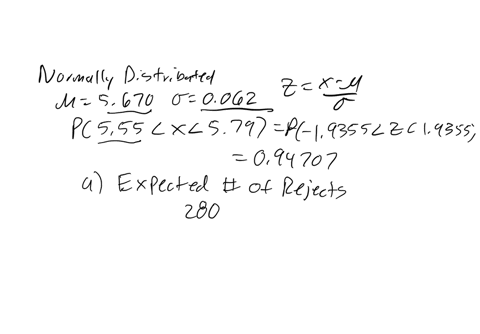 Normally Distributed
μ = 5.670 σ = 0.062 Z = x-μ/σ
P(5.55 < x < 5.79) = P(-1.9355 < Z < 1.9355)
= 0.94707
a) Expected # of Rejects
280